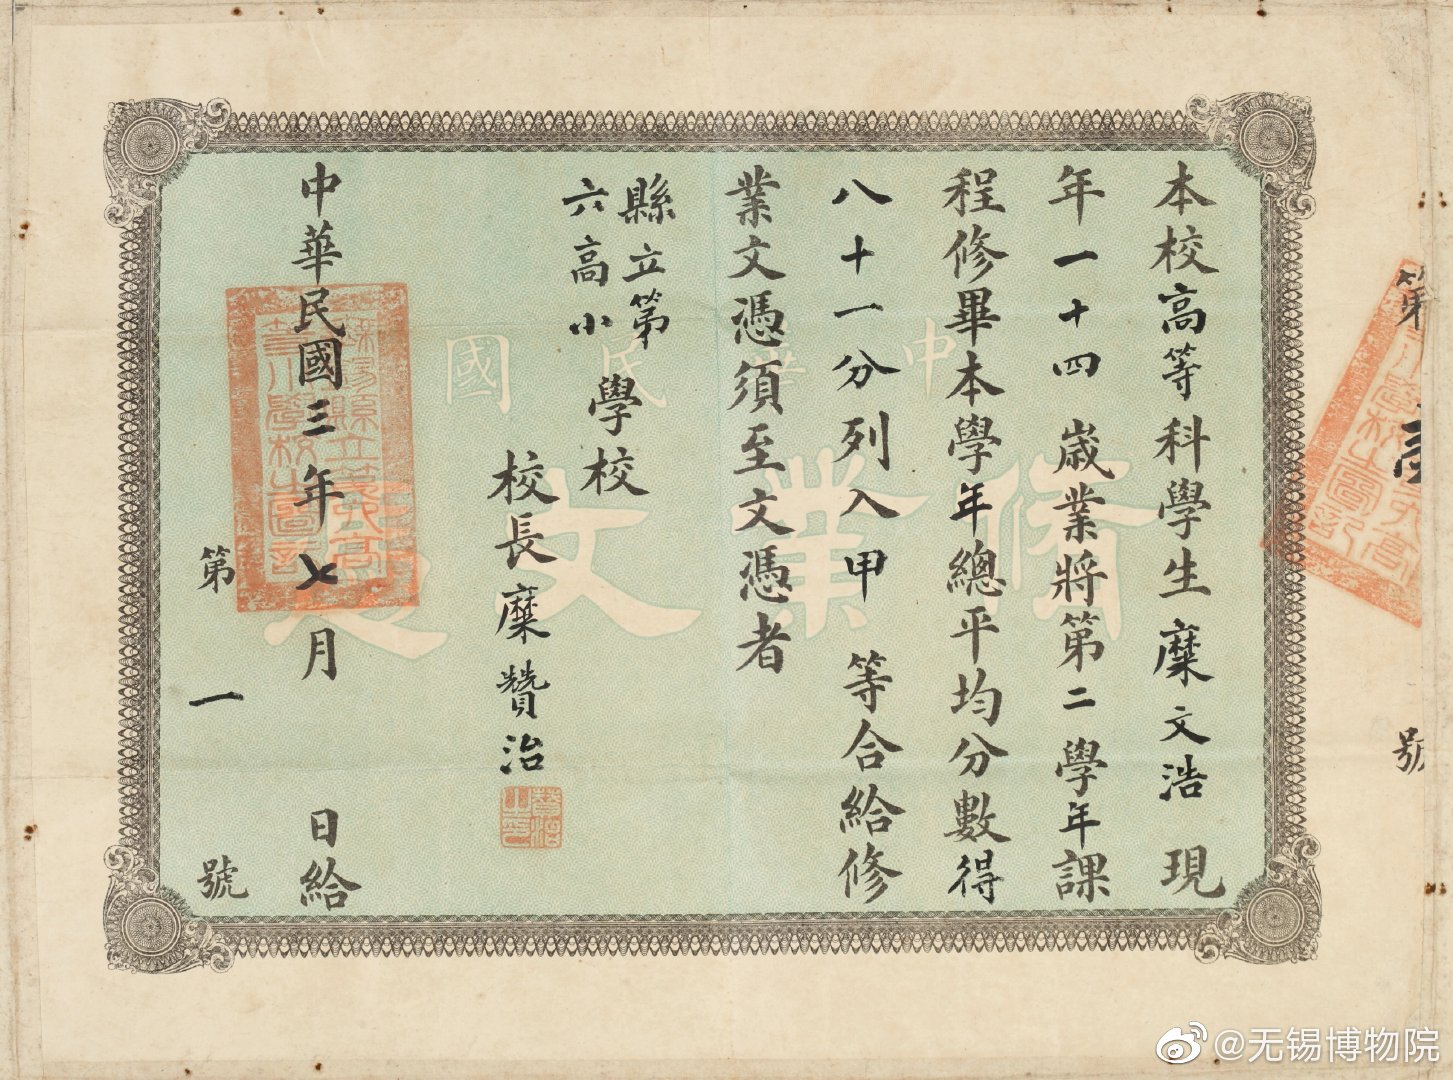 本校高等科學生糜文浩現
年一十四歲業將第二學年課
程修畢本學年總平均分數得
八十一分列入甲等合給修
業文憑須至文憑者
縣立第
六高小
學校
校長糜贊治
中華民國三年七月日給
第一號
中華民國
修業文憑
第壹號
@无锡博物院